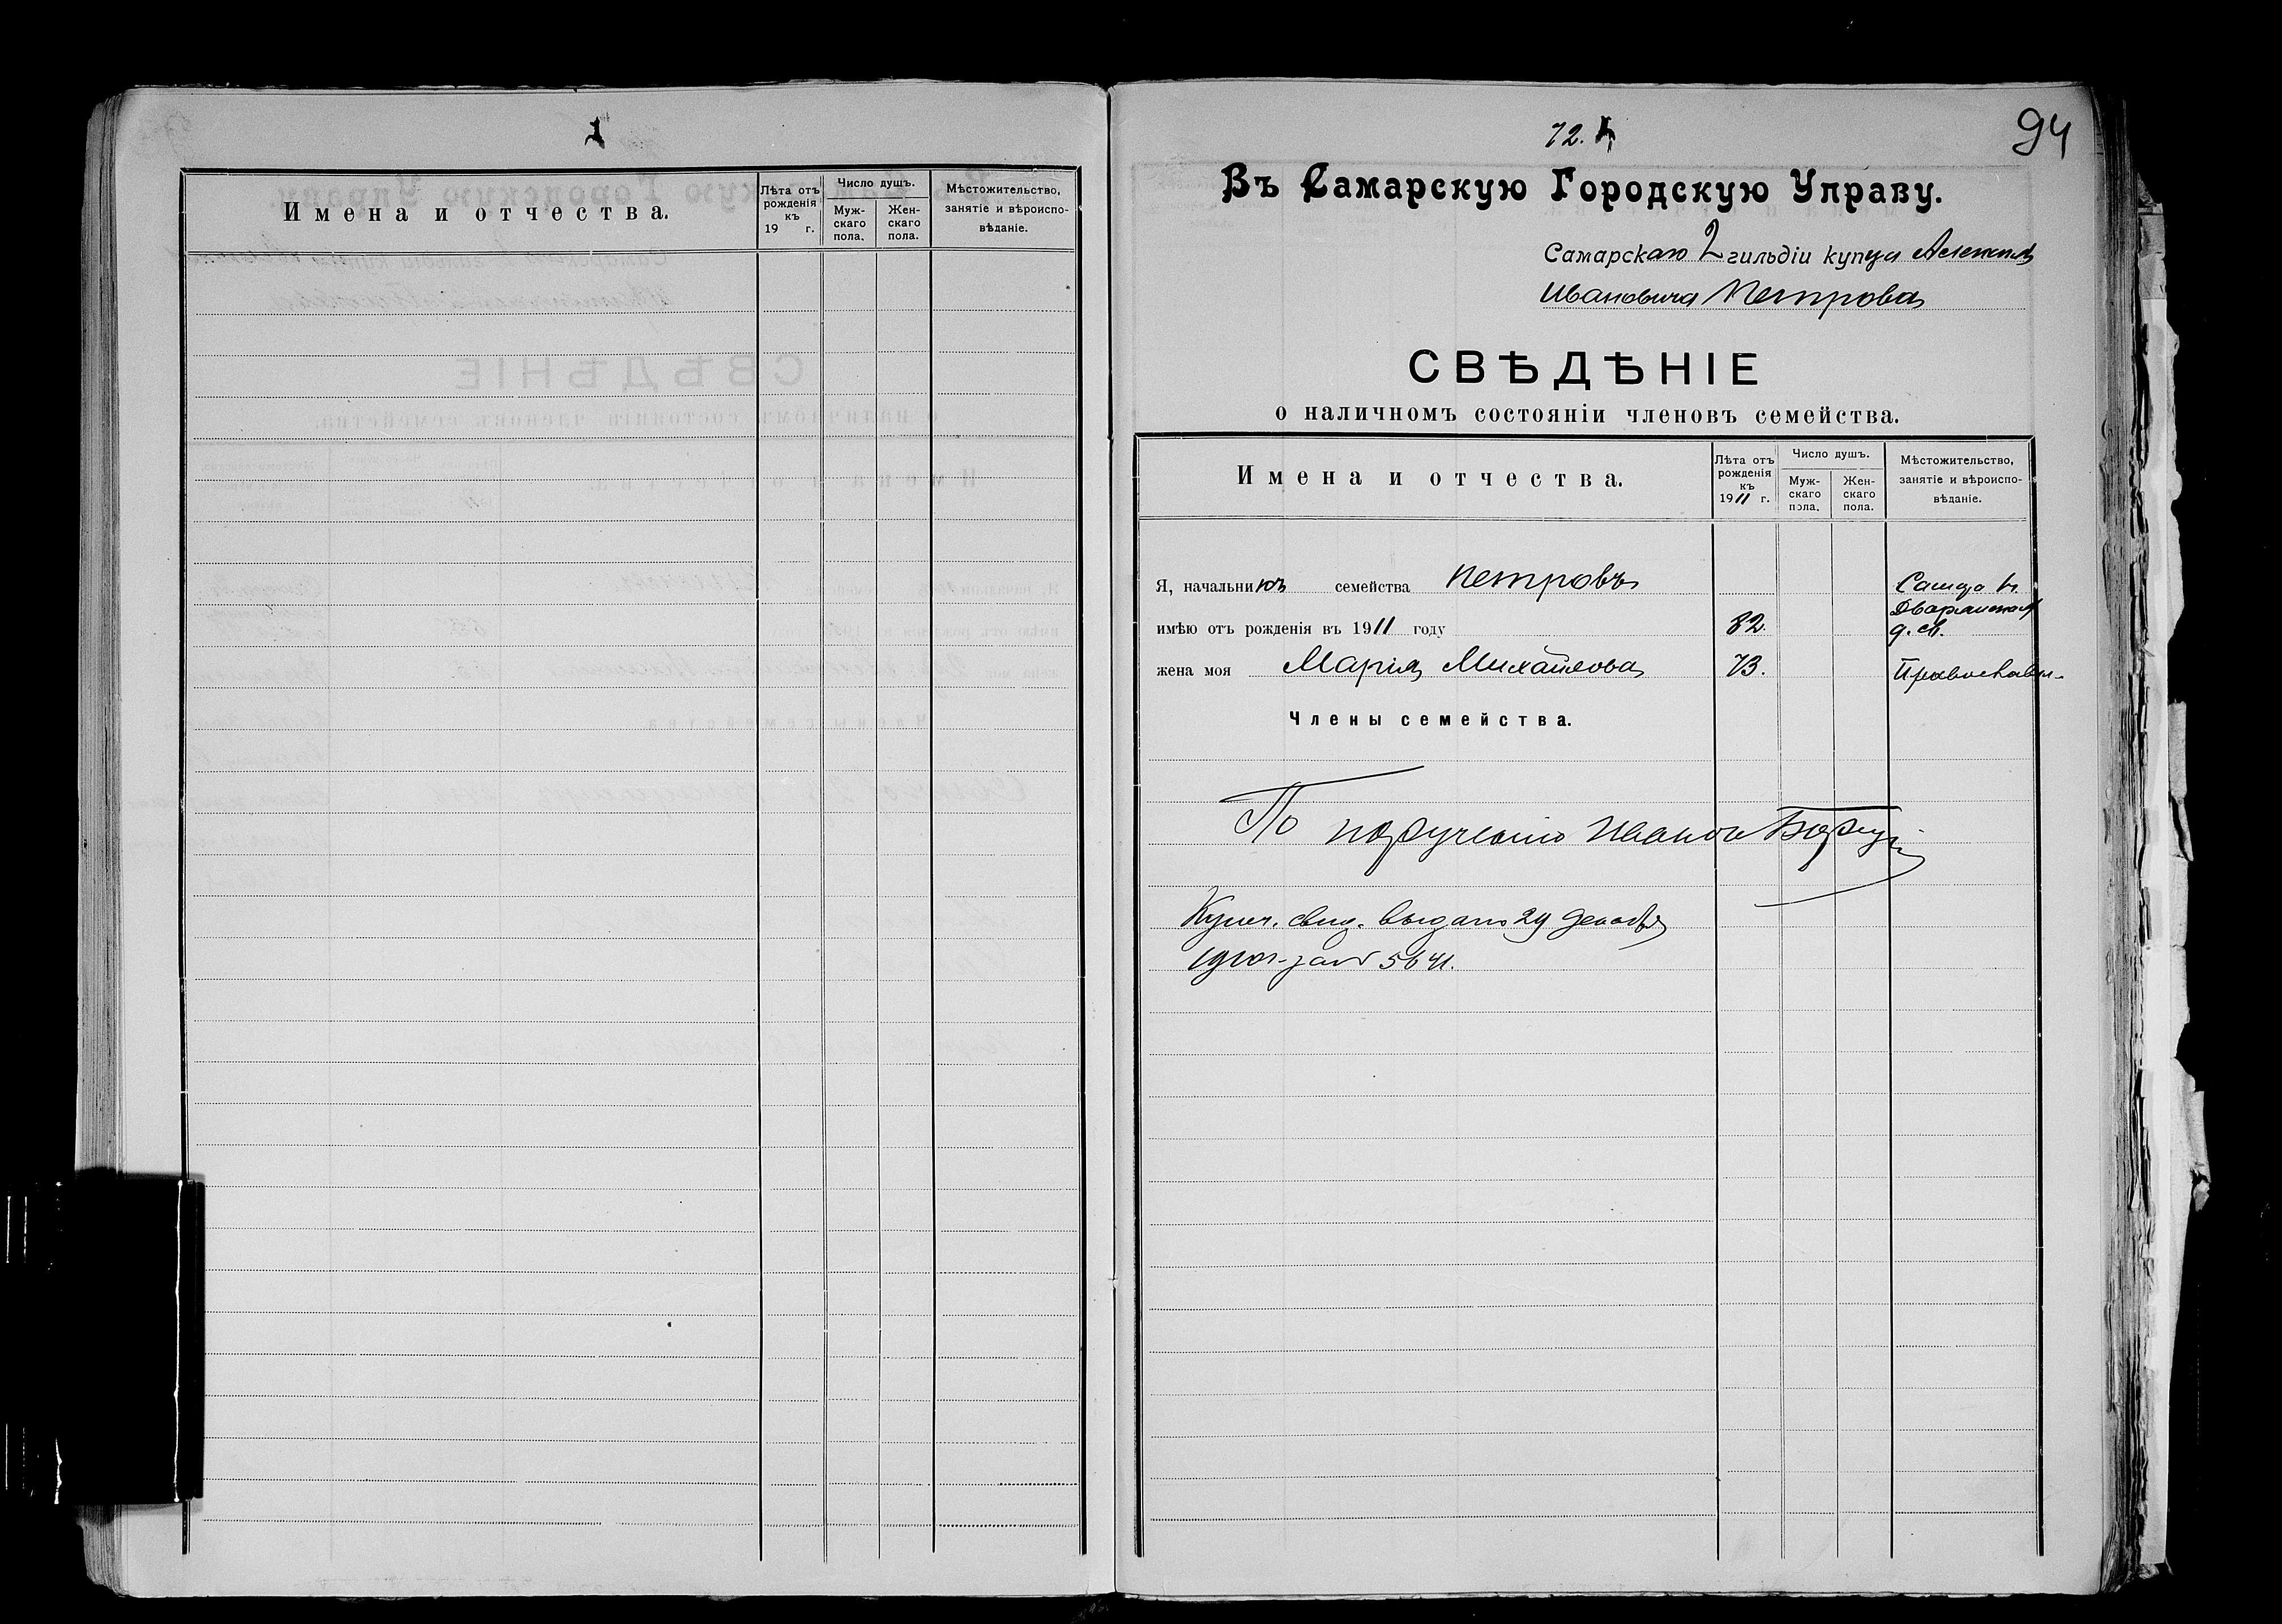 Имена и отчества.
Лѣта отъ рожденія къ 19 г.
Число душъ.
Муж-скаго пола.
Жен-скаго пола.
Мѣстожительство, занятіе и вѣроиспо-вѣданіе.
94
72.
Въ Самарскую Городскую Управу.
Самарскаго 2 гильдіи купца Алексѣя
Ивановича Петрова
СВѢДѢНІЕ
о наличномъ состояніи членовъ семейства.
Имена и отчества.
Лѣта отъ рожденія къ 1911 г.
Число душъ.
Муж-скаго пола.
Жен-скаго пола.
Мѣстожительство, занятіе и вѣроиспо-вѣданіе.
Я, начальникъ семейства Петровъ
Дворянская
имѣю отъ рожденія въ 1911 году 82. д. св.
жена моя Марія Михайлова 73. Православн.
Члены семейства.
По порученію Иванъ
Купеч. свид. выдано 29 декабря
1910 г. за № 5641.